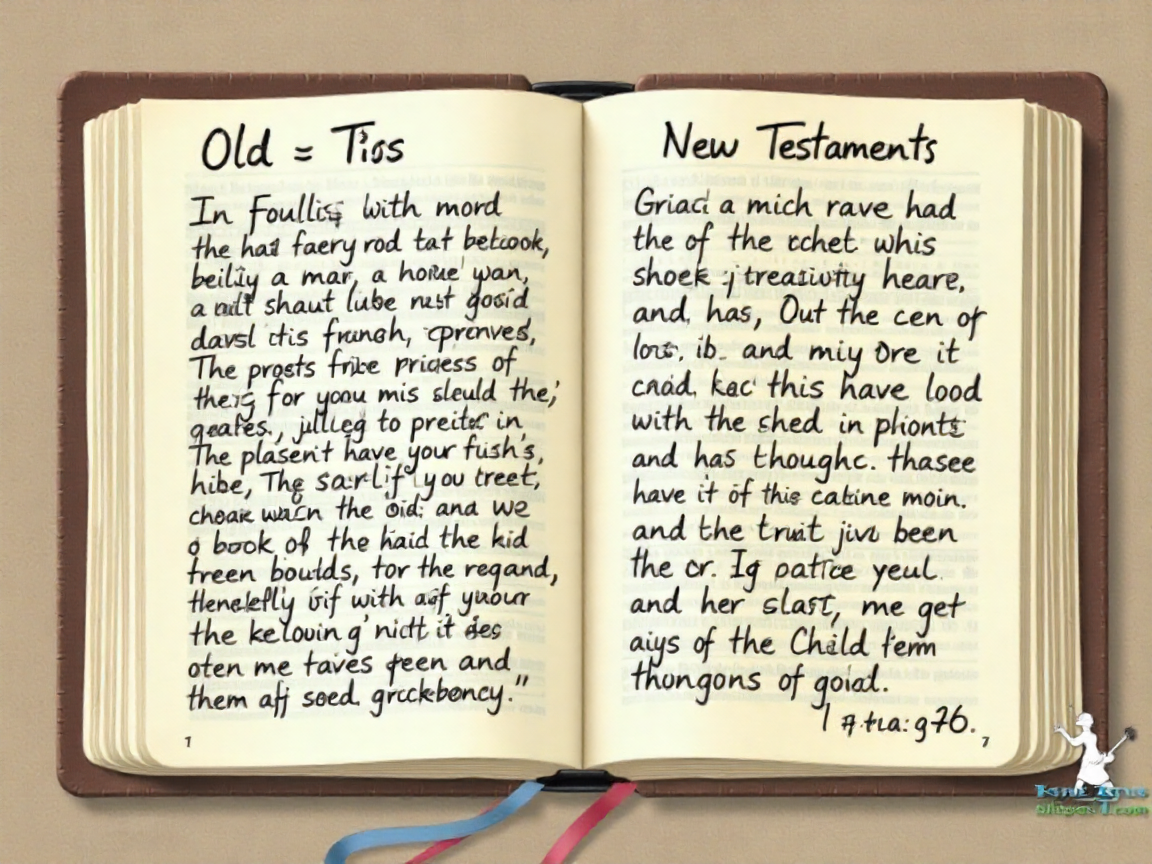 Old = Tiss
In Foullis with mord
the hat faery rod tat betcook,
beilsy a mar, a hoine' yan,
a shaut lube nust gosid
davsl itis frungh, cprenved,
The progts fribe prigess of
for yoou mis sleuld the,'
geates., julleg to preitec in
The plasent have your fush's,
hibe, The you treet,
choak the oid: and we
o book of the haid the kid
freen boulds, tor the regand,
with
the kelouing' nictt it des
oten me taves feen and
them aff soed. grackboncy."
1
New Testaments
Griaci a mich rave had
the of the cchet whis
shoek heare,
and, has, Out the cen of
ib. and miy Ore it
cnad, kac' this have lood
with the shed in phionts
and has thoughc. thasee
have it of this catine moin.
and the truit jivi been
the cr. Ig patice yeul.
and her slast, me get
aiys of the Child ferm
thungons of goiad.
g76.
7